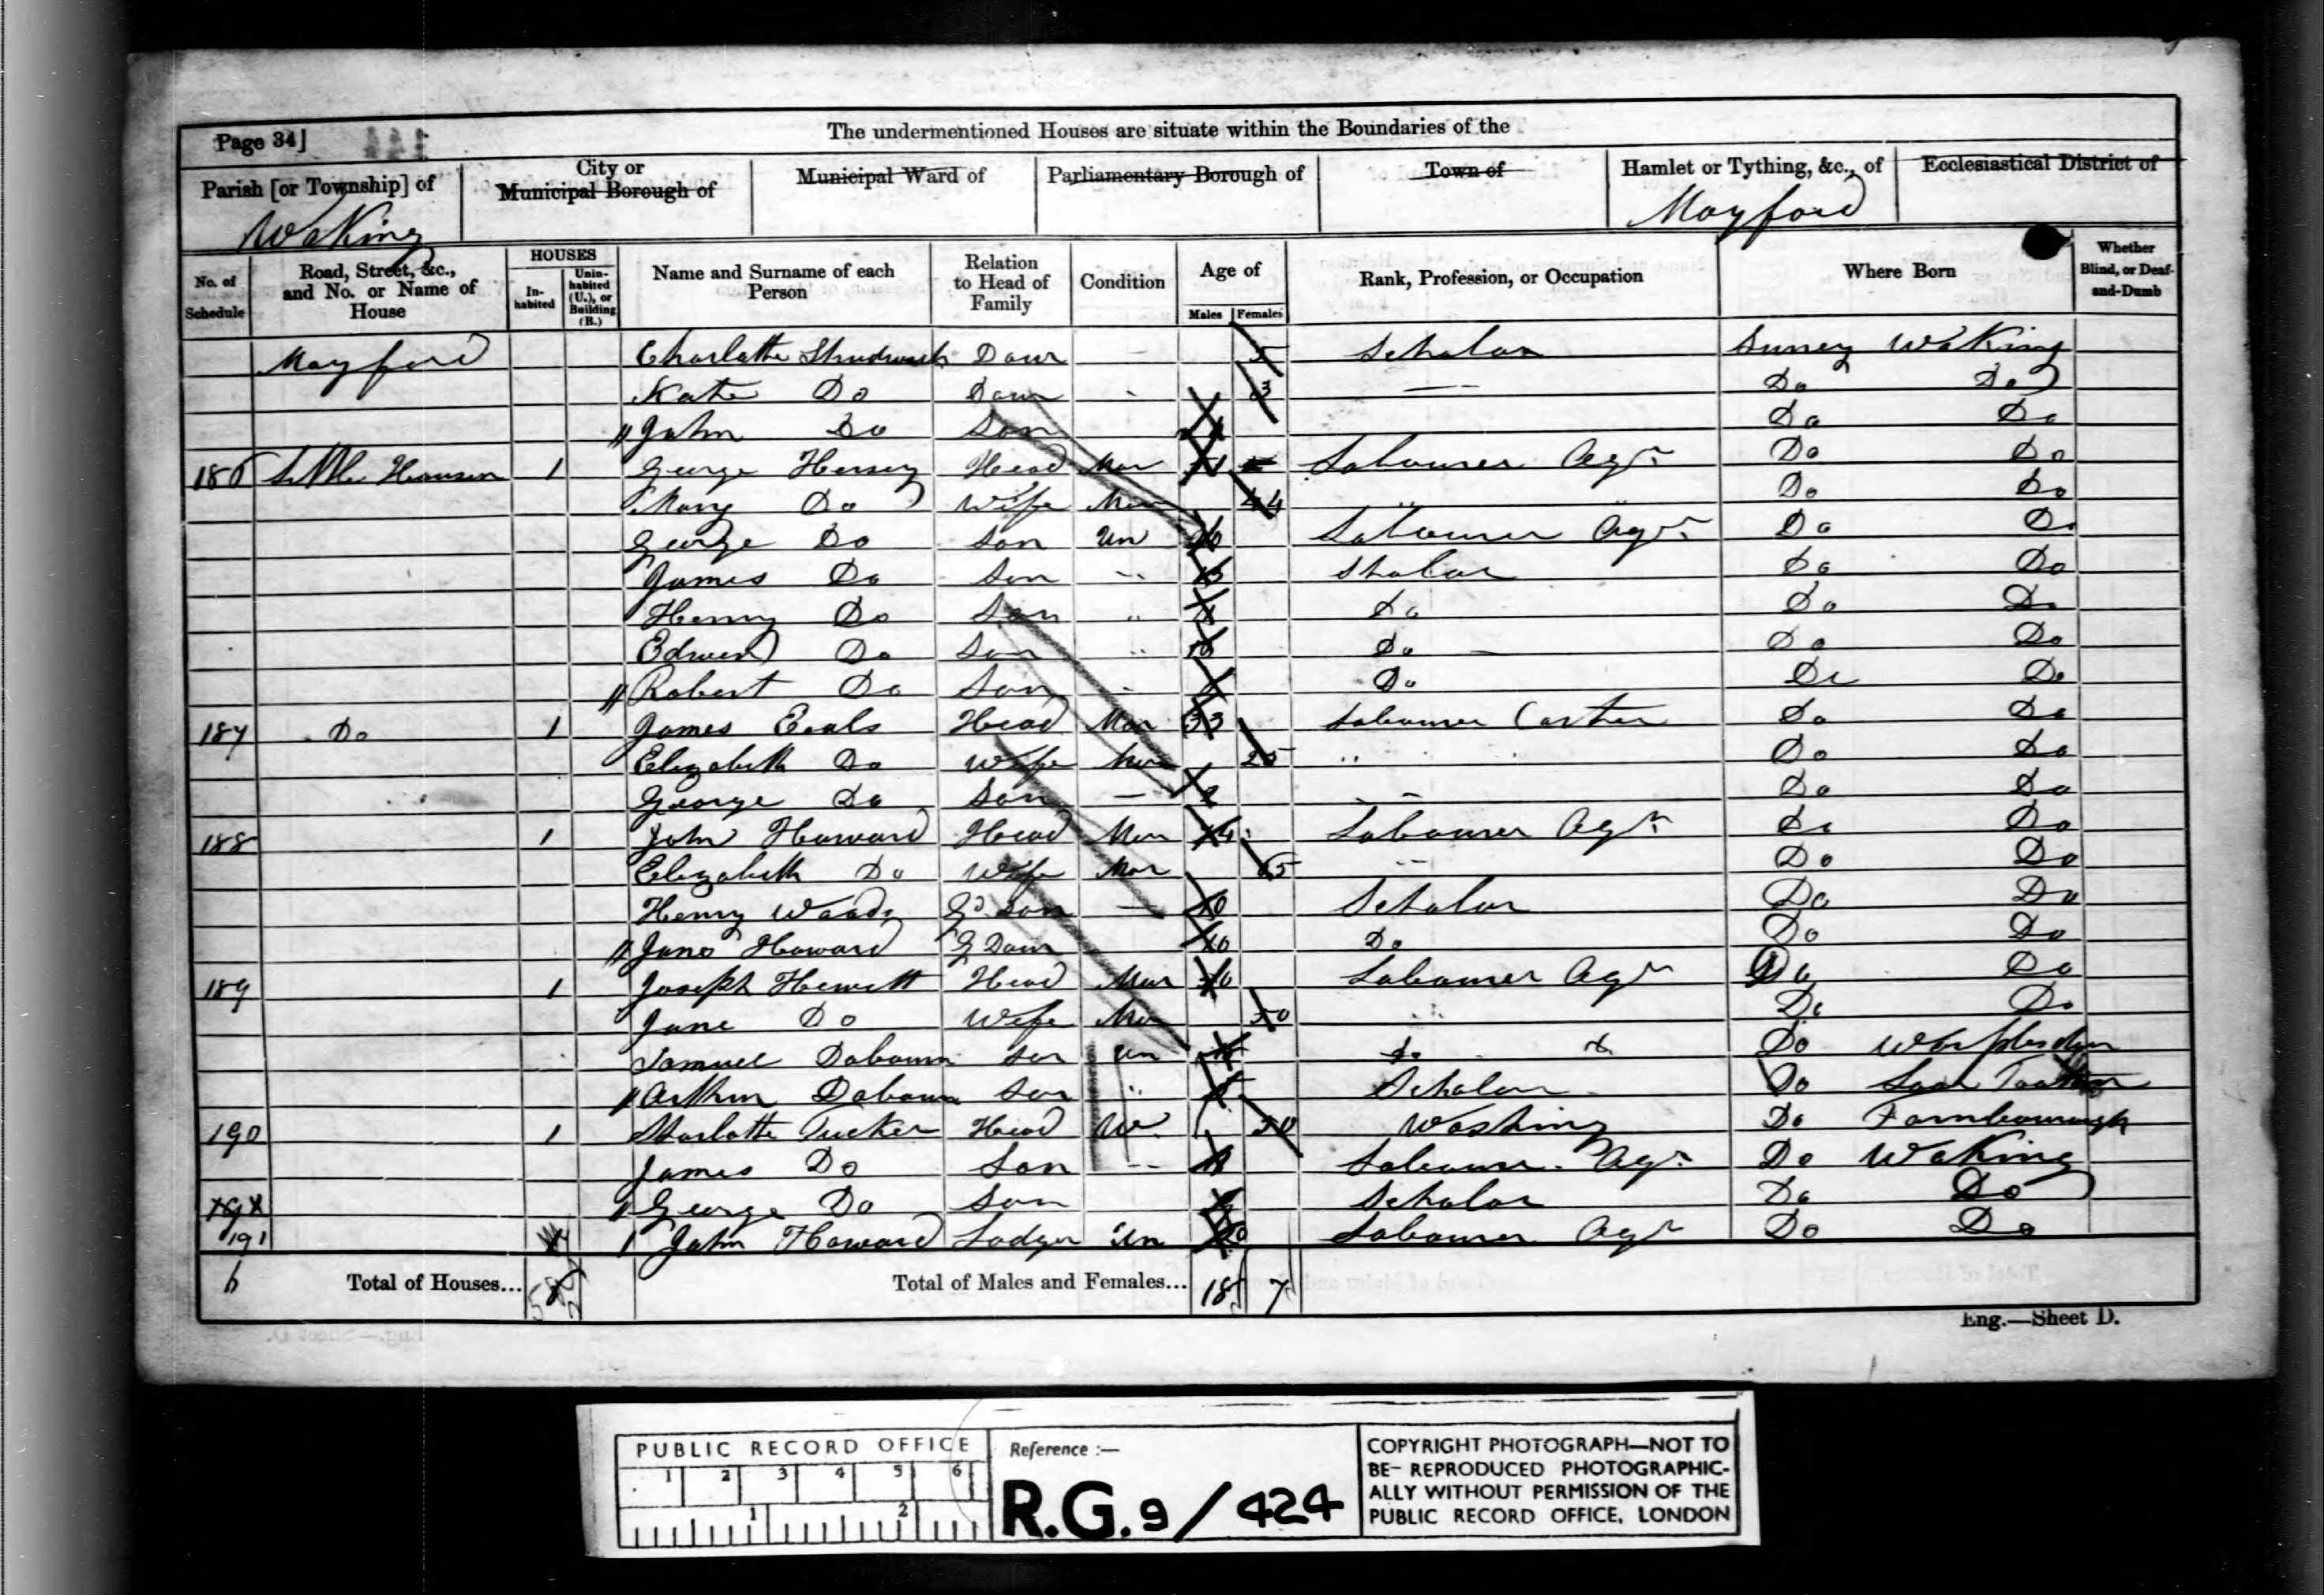 Page 34]
The undermentioned Houses are situate within the Boundaries of the
Parish [or Township] of
City or Municipal Borough of
Municipal Ward of
Parliamentary Borough of
Town of
Hamlet or Tything, &c., of
Ecclesiastical District of
Woking
Mayford
No. of Schedule
Road, Street, &c., and No. or Name of House
HOUSES
In-habited
Unin-habited (U.), or Building (B.)
Name and Surname of each Person
Relation to Head of Family
Condition
Age of
Males
Females
Rank, Profession, or Occupation
Where Born
Whether Blind, or Deaf-and-Dumb
Mayford Charlotte Daur 5 Scholar Surrey Woking
Kate Do Daur 3 Do Do
John Do Son Do Do
186 1 George Head Mar Labourer Agr Do Do
Mary Do Wife Mar 44 Do Do
George Do Son Un Labourer Agr Do Do
James Do Son Sholar Do Do
Henry Do Son Do Do Do
Edwin Do Son Do Do Do
Robert Do Son Do Do Do
187 Do 1 James Head Mar 33 Labourer Carter Do Do
Elizabeth Do Wife Mar 25 Do Do
George Do Son Do Do
188 1 John Howard Head Mar Labourer Agr Do Do
Elizabeth Do Wife Mar 65 Do Do
Henry Woods Gd Son 10 Scholar Do Do
Jane Howard G Daur 10 Do Do Do
189 1 Joseph Hewett Head Mar Labourer Agr Do Do
Jane Do Wife Mar 50 Do Do
Samuel Daborn Son Un Do Do Worplesdon
Arthur Daborn Son Scholar Do
190 1 Charlotte Tucker Head W. 50 Washing Do Farnborough
James Do Son Labourer Agr Do Woking
George Do Son Scholar Do Do
191 John Howard Lodger Un Labourer Agr Do Do
6 Total of Houses...
Total of Males and Females... 18 7
Eng.—Sheet D.
PUBLIC RECORD OFFICE
1 2 3 4 5 6
1 2
Reference :—
R.G. 9/424
COPYRIGHT PHOTOGRAPH—NOT TO
BE REPRODUCED PHOTOGRAPHIC-
ALLY WITHOUT PERMISSION OF THE
PUBLIC RECORD OFFICE, LONDON